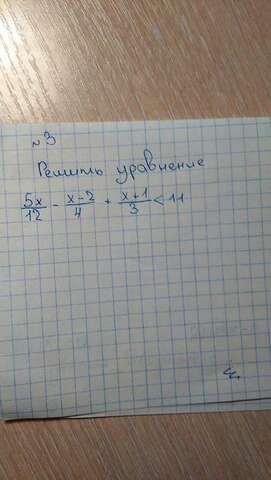 №3
Решить уравнение
5x/12 - x-2/4 + x+1/3 < 11